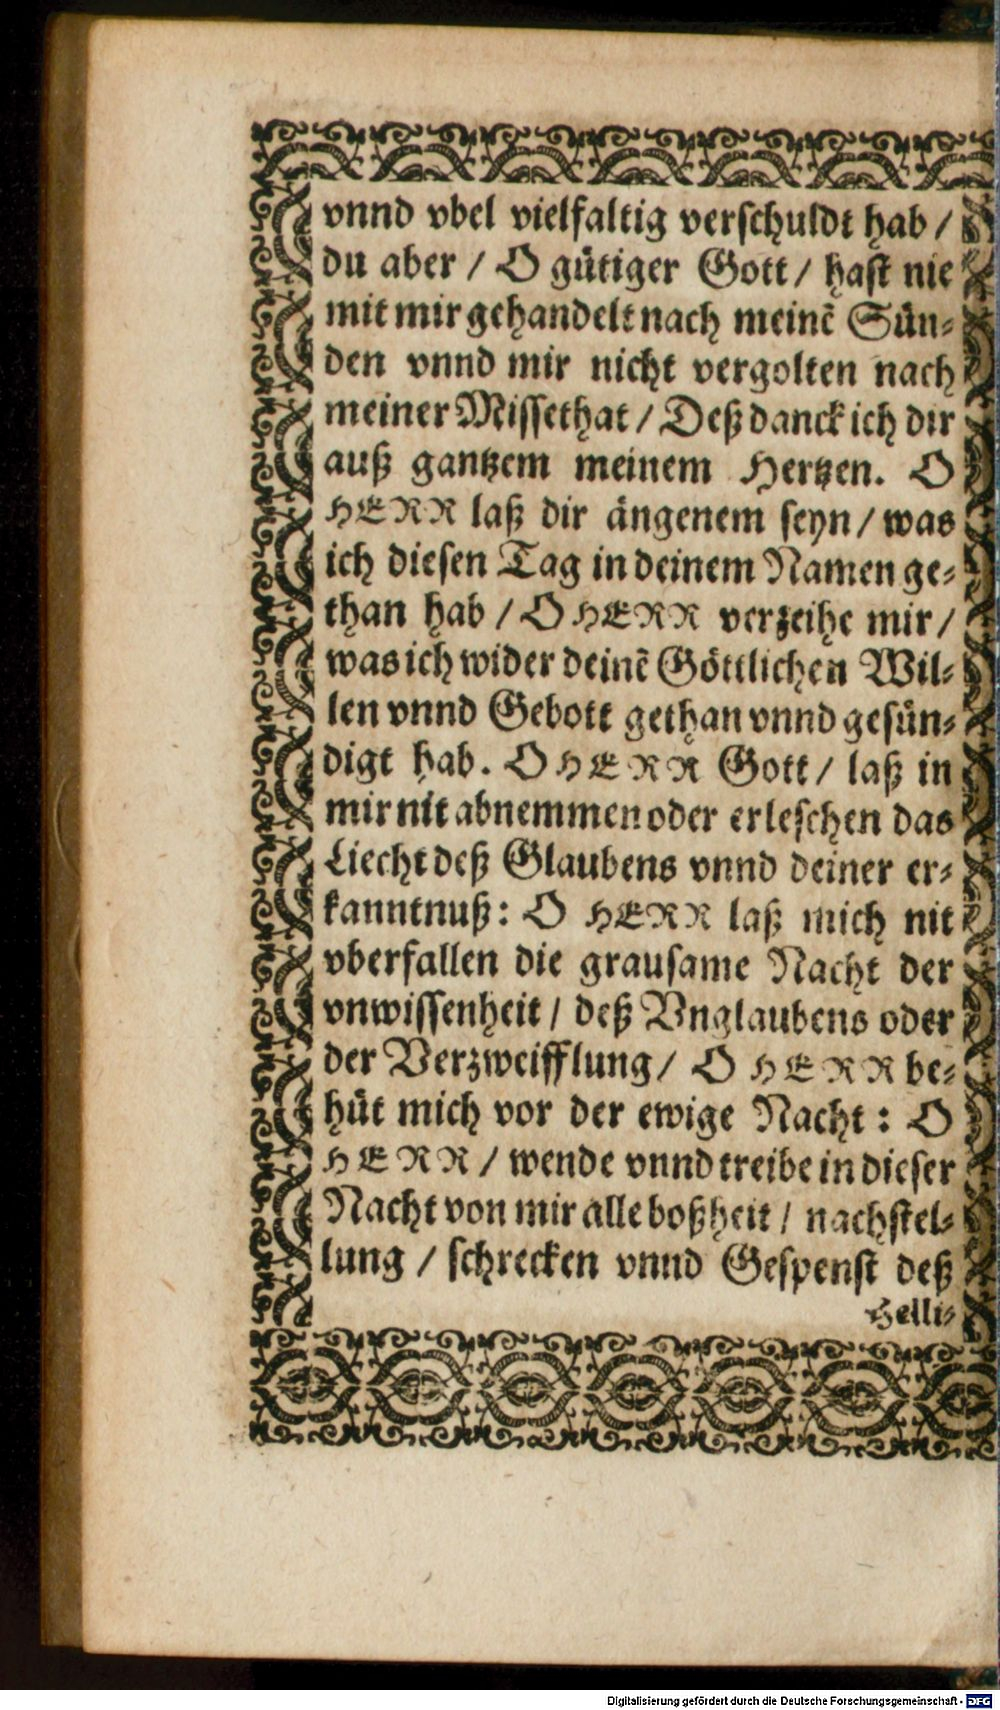 vnnd vbel vielfaltig verschuldt hab /
du aber / O gütiger Gott / hast nie
mit mir gehandelt nach meinẽ Sün-
den vnnd mir nicht vergolten nach
meiner Missethat / Deß danck ich dir
auß gantzem meinem Hertzen. O
HERR laß dir ängenem seyn / was
ich diesen Tag in deinem Namen ge-
than hab / O HERR verzeihe mir /
was ich wider deinẽ Göttlichen Wil-
len vnnd Gebott gethan vnnd gesün-
digt hab. O HERR Gott / laß in
mir nit abnemmen oder erleschen das
Liecht deß Glaubens vnnd deiner er-
kanntnuß: O HERR laß mich nit
vberfallen die grausame Nacht der
vnwissenheit / deß Vnglaubens oder
der Verzweifflung / O HERR be-
hüt mich vor der ewige Nacht: O
HERR / wende vnnd treibe in dieser
Nacht von mir alle boßheit / nachstel-
lung / schrecken vnnd Gespenst deß
Helli-
Digitalisierung gefördert durch die Deutsche Forschungsgemeinschaft - DFG